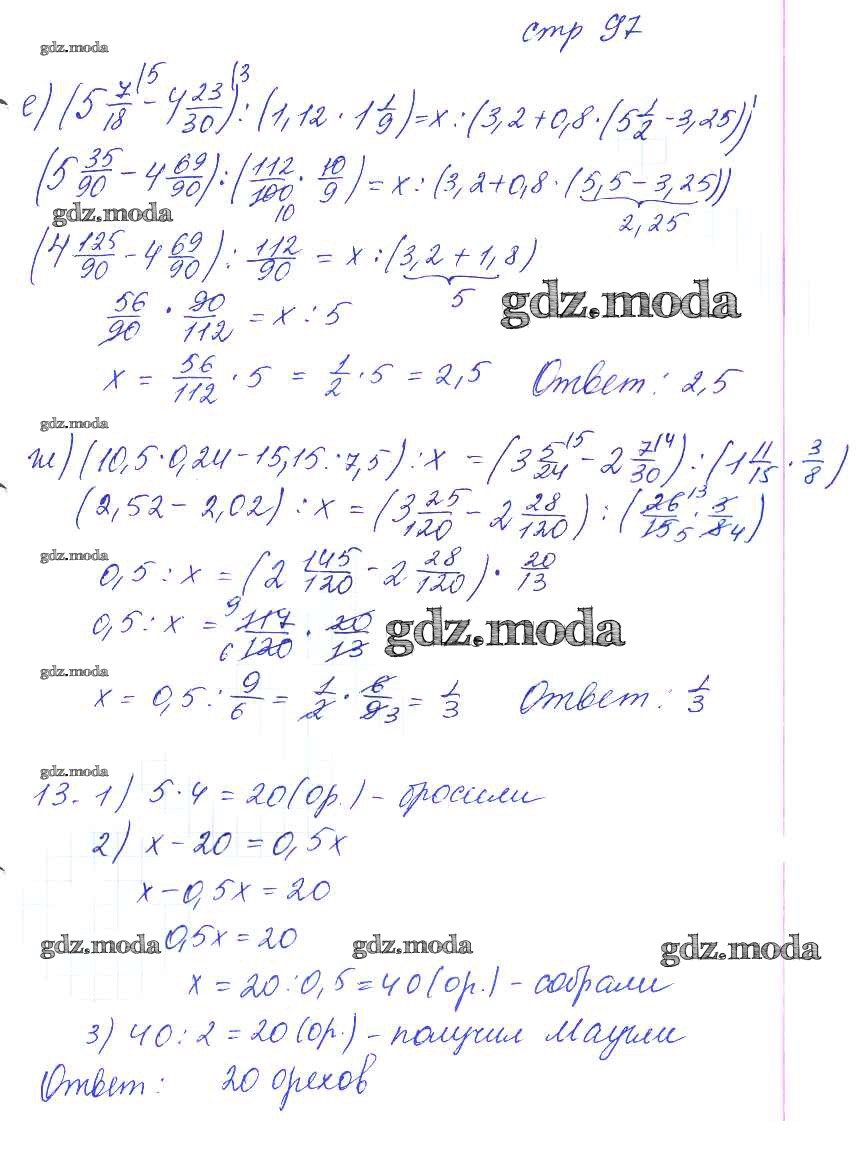 стр 97
gdz.moda
е) (5 7/18 |5 - 4 23/30 |3) : (1,12 · 1 1/9) = x : (3,2 + 0,8 · (5 1/2 - 3,25))
(5 35/90 - 4 69/90) : (112/100 10 · 10/9) = x : (3,2 + 0,8 · (5,5 - 3,25))
gdz.moda 2,25
(4 125/90 - 4 69/90) : 112/90 = x : (3,2 + 1,8)
5
56/90 · 90/112 = x : 5 gdz.moda
x = 56/112 · 5 = 1/2 · 5 = 2,5 Ответ: 2,5
gdz.moda
ж) (10,5 · 0,24 - 15,15 : 7,5) : x = (3 5/24 |5 - 2 7/30 |4) : (1 11/15 · 3/8)
(2,52 - 2,02) : x = (3 25/120 - 2 28/120) : (26 13/15 5 · 3/8 4)
gdz.moda
0,5 : x = (2 145/120 - 2 28/120) · 20/13
0,5 : x = 9 117/6 120 · 20/13 gdz.moda
gdz.moda
x = 0,5 : 9/6 = 1/2 · 6/9 3 = 1/3 Ответ: 1/3
gdz.moda
13. 1) 5 · 4 = 20 (ор.) - бросили
2) x - 20 = 0,5x
x - 0,5x = 20
gdz.moda 0,5x = 20 gdz.moda gdz.moda
x = 20 : 0,5 = 40 (ор.) - собрали
3) 40 : 2 = 20 (ор.) - получил Маугли
Ответ: 20 орехов